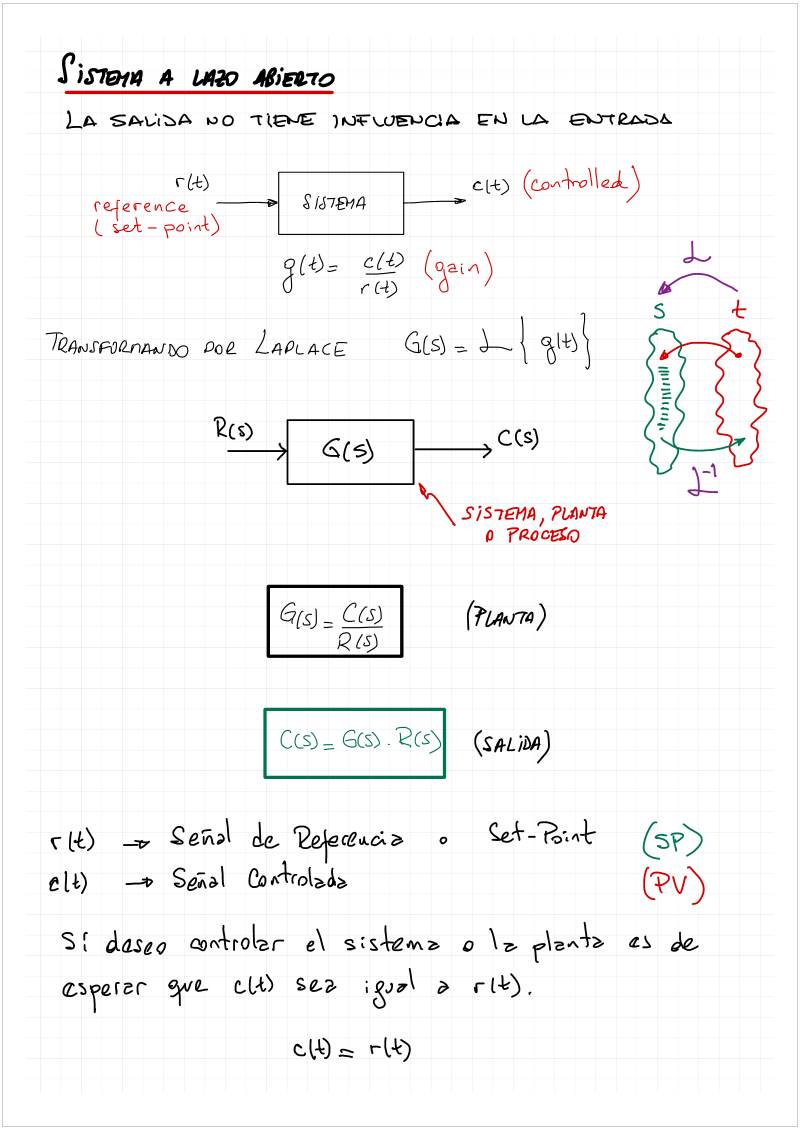 SISTEMA A LAZO ABIERTO
LA SALIDA NO TIENE INFLUENCIA EN LA ENTRADA
r(t)
reference
(set-point)
SISTEMA
c(t) (controlled)
g(t) = c(t)/r(t) (gain)
ℒ
s t
TRANSFORMANDO POR LAPLACE G(s) = ℒ{g(t)}
R(s)
G(s)
C(s)
ℒ⁻¹
SISTEMA, PLANTA
O PROCESO
G(s) = C(s)/R(s) (PLANTA)
C(s) = G(s) . R(s) (SALIDA)
r(t) → Señal de Referencia o Set-Point (SP)
c(t) → Señal Controlada (PV)
Si deseo controlar el sistema o la planta es de
esperar que c(t) sea igual a r(t).
c(t) = r(t)